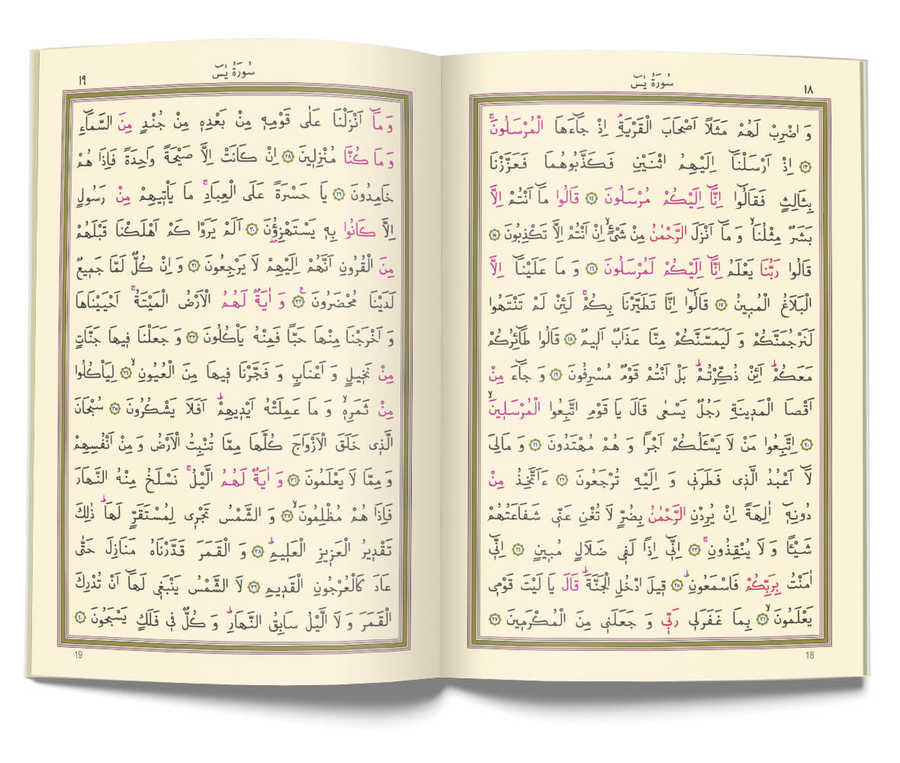 سُورَةُ يٰسٓ
١٨
وَ اضْرِبْ لَهُمْ مَثَلًا اَصْحَابَ الْقَرْيَةِۢ اِذْ جَٓاءَهَا الْمُرْسَلُونَۚ
﴿١٣﴾ اِذْ اَرْسَلْنَٓا اِلَيْهِمُ اثْنَيْنِ فَكَذَّبُوهُمَا فَعَزَّزْنَا
بِثَالِثٍ فَقَالُٓوا اِنَّٓا اِلَيْكُمْ مُرْسَلُونَ ﴿١٤﴾ قَالُوا مَٓا اَنْتُمْ اِلَّا
بَشَرٌ مِثْلُنَاۙ وَ مَٓا اَنْزَلَ الرَّحْمٰنُ مِنْ شَيْءٍۙ اِنْ اَنْتُمْ اِلَّا تَكْذِبُونَ ﴿١٥﴾
قَالُوا رَبُّنَا يَعْلَمُ اِنَّٓا اِلَيْكُمْ لَمُرْسَلُونَ ﴿١٦﴾ وَ مَا عَلَيْنَٓا اِلَّا
الْبَلَاغُ الْمُبِينُ ﴿١٧﴾ قَالُٓوا اِنَّا تَطَيَّرْنَا بِكُمْۚ لَئِنْ لَمْ تَنْتَهُوا
لَنَرْجُمَنَّكُمْ وَ لَيَمَسَّنَّكُمْ مِنَّا عَذَابٌ اَلِيمٌ ﴿١٨﴾ قَالُوا طَٓائِرُكُمْ
مَعَكُمْۜ اَئِنْ ذُكِّرْتُمْۜ بَلْ اَنْتُمْ قَوْمٌ مُسْرِفُونَ ﴿١٩﴾ وَ جَٓاءَ مِنْ
اَقْصَا الْمَدِينَةِ رَجُلٌ يَسْعٰى قَالَ يَا قَوْمِ اتَّبِعُوا الْمُرْسَلِينَۙ
﴿٢٠﴾ اِتَّبِعُوا مَنْ لَا يَسْئَلُكُمْ اَجْرًا وَ هُمْ مُهْتَدُونَ ﴿٢١﴾ وَ مَالِيَ
لَٓا اَعْبُدُ الَّذِى فَطَرَنِى وَ اِلَيْهِ تُرْجَعُونَ ﴿٢٢﴾ ءَاَتَّخِذُ مِنْ
دُونِهِٓ اٰلِهَةً اِنْ يُرِدْنِ الرَّحْمٰنُ بِضُرٍّ لَا تُغْنِ عَنِّى شَفَاعَتُهُمْ
شَيْئًا وَ لَا يُنْقِذُونِۚ ﴿٢٣﴾ اِنِّٓى اِذًا لَفِى ضَلَالٍ مُبِينٍ ﴿٢٤﴾ اِنِّٓى
اٰمَنْتُ بِرَبِّكُمْ فَاسْمَعُونِۜ ﴿٢٥﴾ قِيلَ ادْخُلِ الْجَنَّةَۜ قَالَ يَا لَيْتَ قَوْمِى
يَعْلَمُونَۙ ﴿٢٦﴾ بِمَا غَفَرَلِى رَبِّى وَ جَعَلَنِى مِنَ الْمُكْرَمِينَ ﴿٢٧﴾
18
سُورَةُ يٰسٓ
١٩
وَ مَٓا اَنْزَلْنَا عَلٰى قَوْمِهِ مِنْ بَعْدِهِ مِنْ جُنْدٍ مِنَ السَّمَٓاءِ
وَ مَا كُنَّا مُنْزِلِينَ ﴿٢٨﴾ اِنْ كَانَتْ اِلَّا صَيْحَةً وَاحِدَةً فَاِذَا هُمْ
خَامِدُونَ ﴿٢٩﴾ يَا حَسْرَةً عَلَى الْعِبَادِۚ مَا يَأْتِيهِمْ مِنْ رَسُولٍ
اِلَّا كَانُوا بِهِ يَسْتَهْزِؤُنَ ﴿٣٠﴾ اَلَمْ يَرَوْا كَمْ اَهْلَكْنَا قَبْلَهُمْ
مِنَ الْقُرُونِ اَنَّهُمْ اِلَيْهِمْ لَا يَرْجِعُونَ ﴿٣١﴾ وَ اِنْ كُلٌّ لَمَّا جَمِيعٌ
لَدَيْنَا مُحْضَرُونَ۟ ﴿٣٢﴾ وَ اٰيَةٌ لَهُمُ الْاَرْضُ الْمَيْتَةُۚ اَحْيَيْنَاهَا
وَ اَخْرَجْنَا مِنْهَا حَبًّا فَمِنْهُ يَأْكُلُونَ ﴿٣٣﴾ وَ جَعَلْنَا فِيهَا جَنَّاتٍ
مِنْ نَخِيلٍ وَ اَعْنَابٍ وَ فَجَّرْنَا فِيهَا مِنَ الْعُيُونِۙ ﴿٣٤﴾ لِيَأْكُلُوا
مِنْ ثَمَرِهِۙ وَ مَا عَمِلَتْهُ اَيْدِيهِمْۜ اَفَلَا يَشْكُرُونَ ﴿٣٥﴾ سُبْحَانَ
الَّذِى خَلَقَ الْاَزْوَاجَ كُلَّهَا مِمَّا تُنْبِتُ الْاَرْضُ وَ مِنْ اَنْفُسِهِمْ
وَ مِمَّا لَا يَعْلَمُونَ ﴿٣٦﴾ وَ اٰيَةٌ لَهُمُ الَّيْلُۚ نَسْلَخُ مِنْهُ النَّهَارَ
فَاِذَا هُمْ مُظْلِمُونَۙ ﴿٣٧﴾ وَ الشَّمْسُ تَجْرِى لِمُسْتَقَرٍّ لَهَاۜ ذٰلِكَ
تَقْدِيرُ الْعَزِيزِ الْعَلِيمِۜ ﴿٣٨﴾ وَ الْقَمَرَ قَدَّرْنَاهُ مَنَازِلَ حَتّٰى
عَادَ كَالْعُرْجُونِ الْقَدِيمِ ﴿٣٩﴾ لَا الشَّمْسُ يَنْبَغِى لَهَٓا اَنْ تُدْرِكَ
الْقَمَرَ وَ لَا الَّيْلُ سَابِقُ النَّهَارِۜ وَ كُلٌّ فِى فَلَكٍ يَسْبَحُونَ ﴿٤٠﴾
19